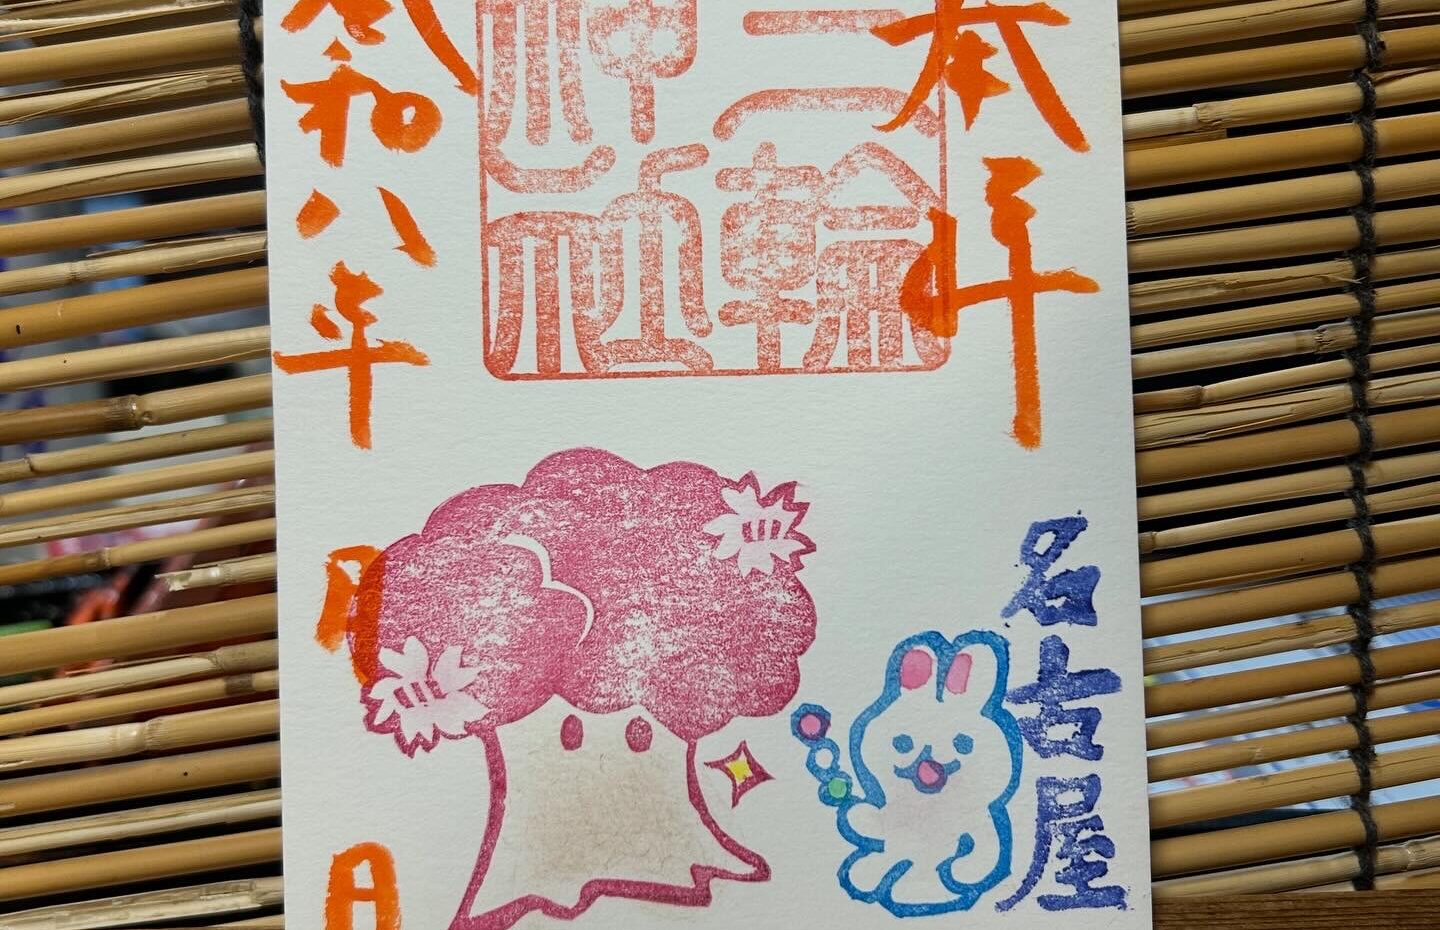 奉拝
名古屋
三輪
神社
令和八年 月 日